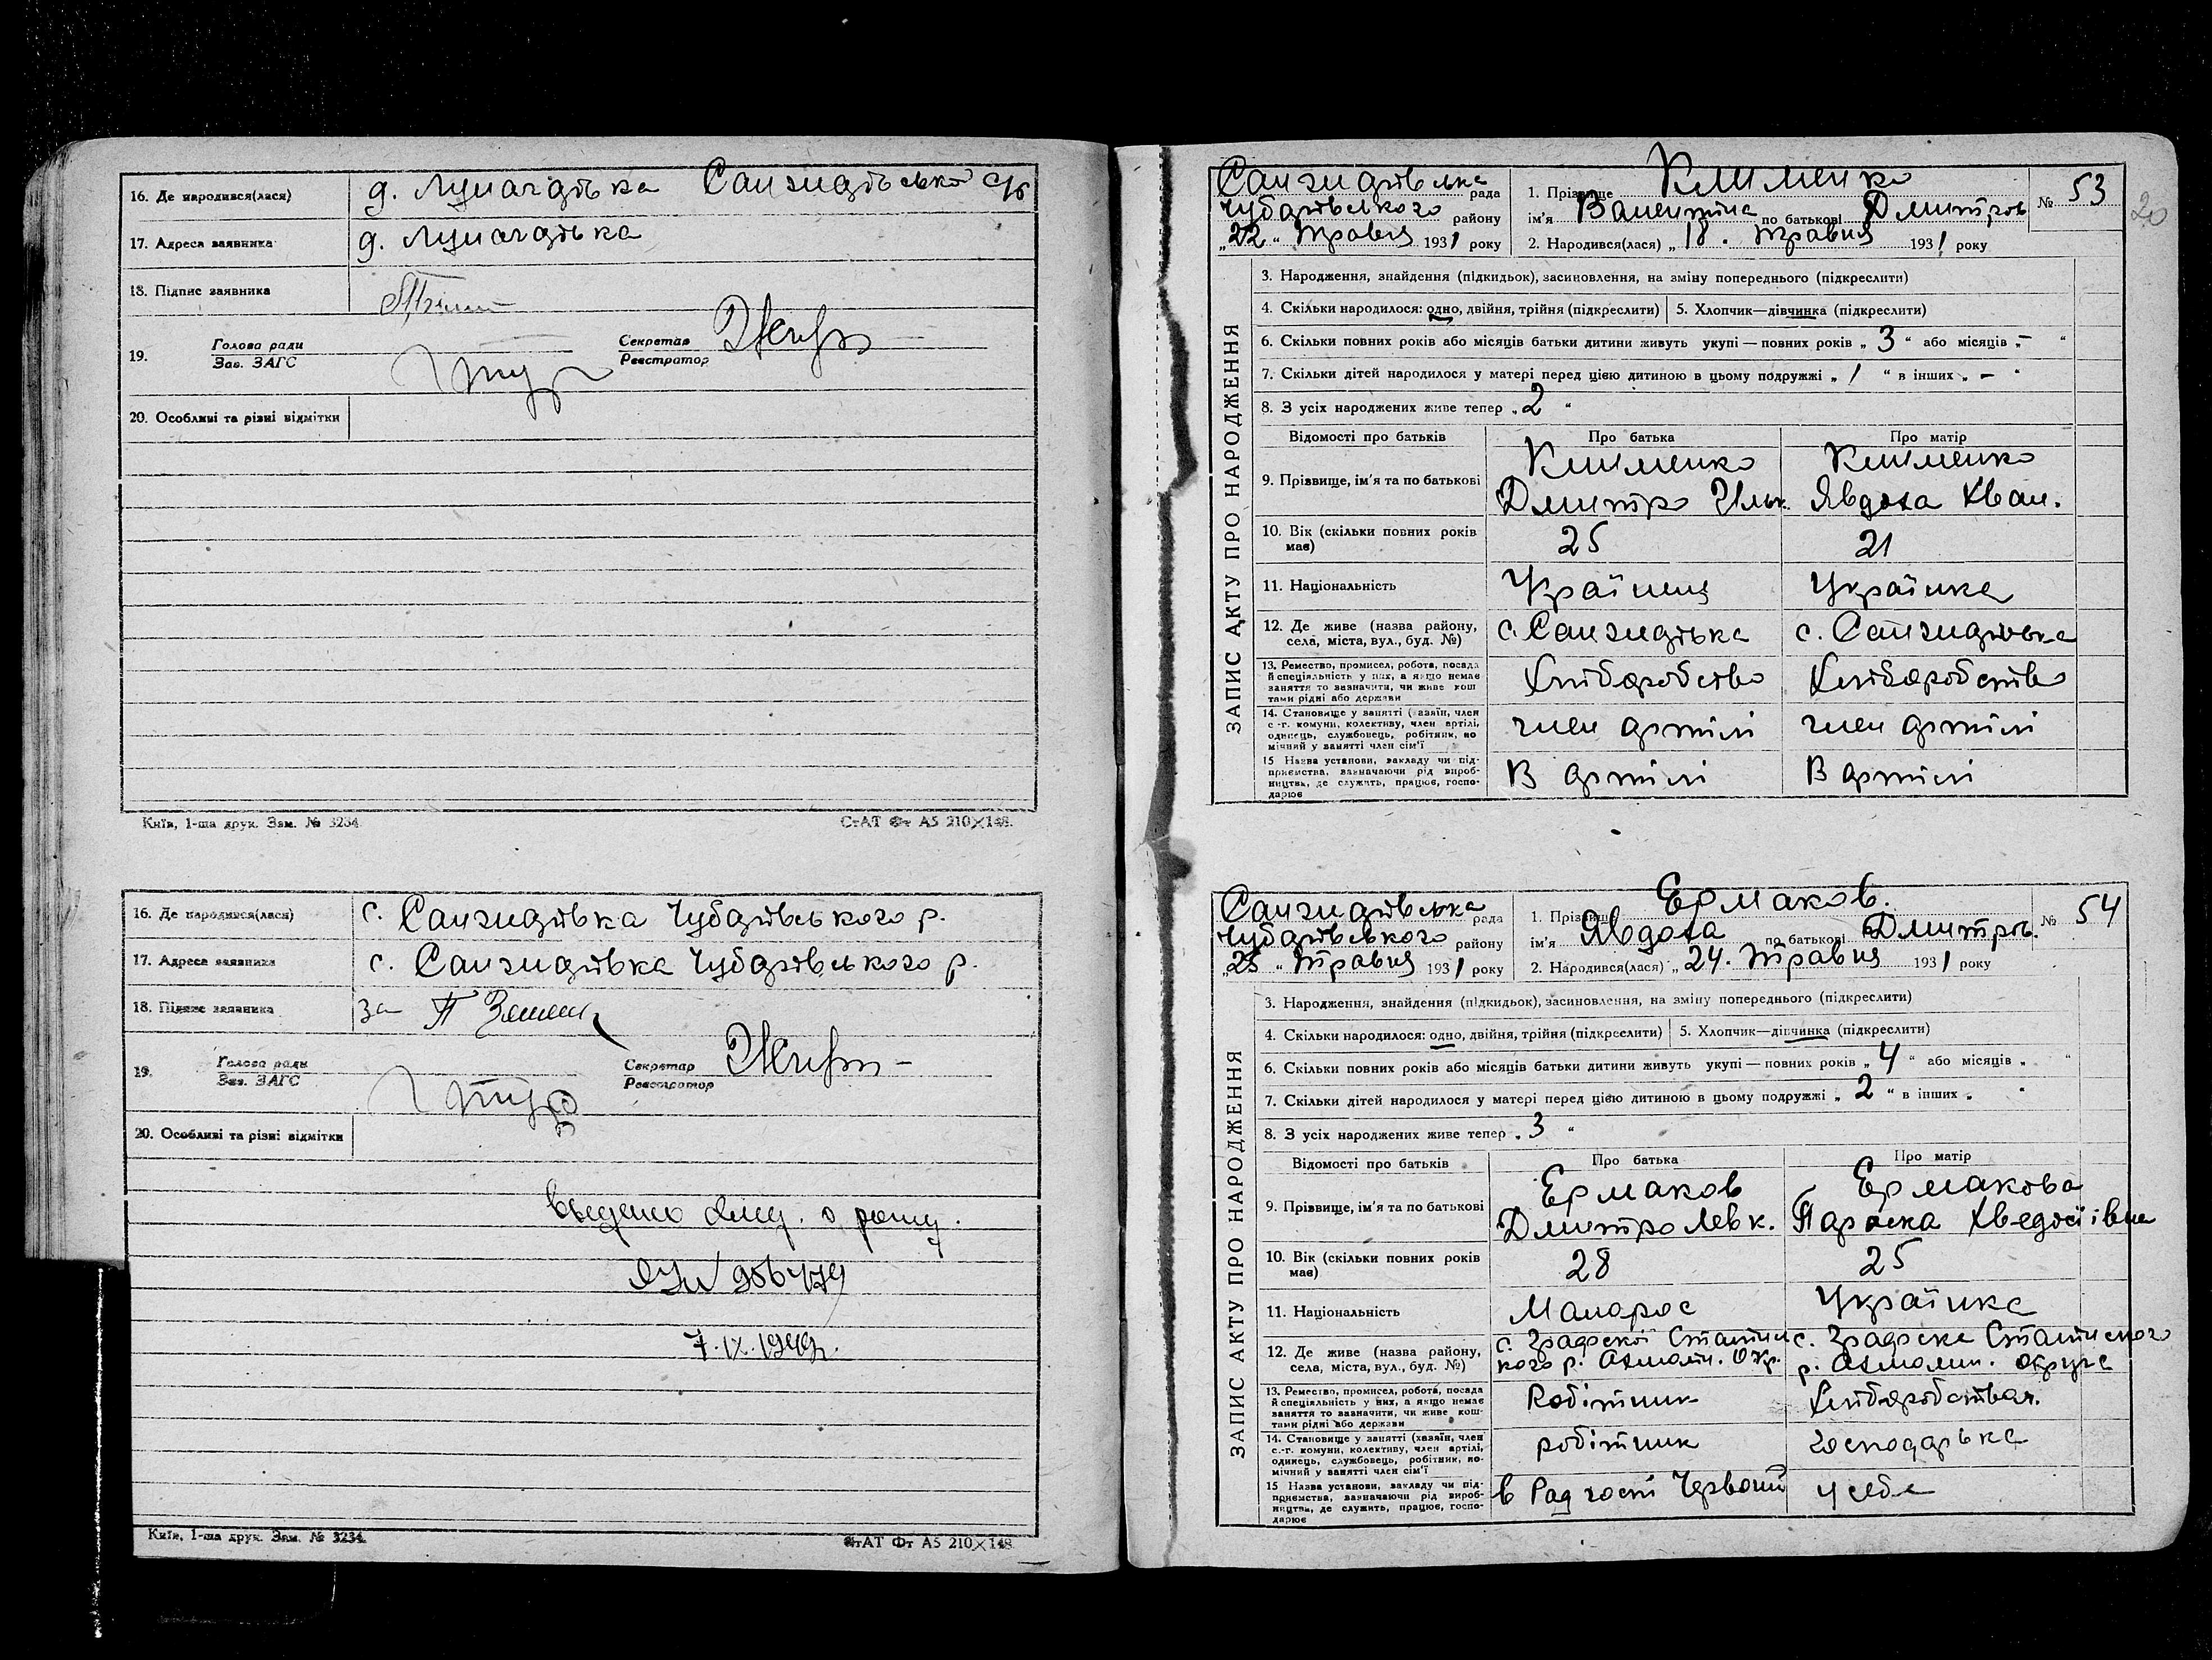 16. Де народився(лася)
17. Адреса заявника
18. Підпис заявника
19. Голова ради
Зав. ЗАГС
Секретар
Реєстратор
20. Особливі та різні відмітки
Київ, 1-ша друк. Зам. № 3234
СтАТ Фт А5 210×148.
16. Де народився(лася) с. Сангидівка Чубарівського р.
17. Адреса заявника с. Сангидівка Чубарівського р.
18. Підпис заявника за П
19. Голова ради
Зав. ЗАГС
Секретар
Реєстратор
20. Особливі та різні відмітки
7.IX.1949г.
Київ, 1-ша друк. Зам. № 3234.
СтАТ Фт А5 210×148
ЗАПИС АКТУ ПРО НАРОДЖЕННЯ
рада
Чубарівського району
„22 “ травня 1931 року
1. Прізвище Клименко
ім'я Валентина по батькові Дмитров
2. Народився(лася) „ 18. травня 1931 року
№ 53
20
3. Народження, знайдення (підкидьок), засиновлення, на зміну попереднього (підкреслити)
4. Скільки народилося: одно, двійня, трійня (підкреслити)
5. Хлопчик—дівчинка (підкреслити)
6. Скільки повних років або місяців батьки дитини живуть укупі — повних років „ 3 “ або місяців „ – “
7. Скільки дітей народилося у матері перед цією дитиною в цьому подружжі „ 1 “ в інших „ – “
8. З усіх народжених живе тепер „ 2 “
Відомості про батьків Про батька Про матір
9. Прізвище, ім'я та по батькові
Клименко
Дмитро Ільк.
Клименко
Явдоха Іван.
10. Вік (скільки повних років має) 25 21
11. Національність Українець Українка
12. Де живе (назва району, села, міста, вул., буд. №)
с. Сангидівка с. Сангидівка
13. Ремество, промисел, робота, посада
й спеціяльність у них, а якщо немає
заняття то зазначити, чи живе кош
тами рідні або держави
Хліборобство Хліборобство
14. Становище у занятті (хазяїн, член
с.-г. комуни, колективу, член артілі,
одинець, службовець, робітник, по
мічний у занятті член сім'ї
член артілі член артілі
15 Назва установи, закладу чи під-
приємства, зазначаючи рід вироб-
ництва, де служить, працює, госпо-
дарює
В артілі В артілі
ЗАПИС АКТУ ПРО НАРОДЖЕННЯ
рада
Чубарівського району
25 “ травня 1931 року
1. Прізвище Ермаков.
ім'я Явдоха по батькові Дмитров.
2. Народився(лася) „ 24. травня 1931 року
№ 54
3. Народження, знайдення (підкидьок), засиновлення, на зміну попереднього (підкреслити)
4. Скільки народилося: одно, двійня, трійня (підкреслити)
5. Хлопчик—дівчинка (підкреслити)
6. Скільки повних років або місяців батьки дитини живуть укупі — повних років „ 4 “ або місяців „ “
7. Скільки дітей народилося у матері перед цією дитиною в цьому подружжі „ 2 “ в інших „ “
8. З усіх народжених живе тепер „ 3 “
Відомості про батьків Про батька Про матір
9. Прізвище, ім'я та по батькові
Ермаков
Дмитро Левк.
Ермакова
Параска
10. Вік (скільки повних років має) 28 25
11. Національність Малорос Українка
12. Де живе (назва району, села, міста, вул., буд. №)
13. Ремество, промисел, робота, посада
й спеціяльність у них, а якщо немає
заняття то зазначити, чи живе кош-
тами рідні або держави
Робітник
14. Становище у занятті (хазяїн, член
с.-г. комуни, колективу, член артілі,
одинець, службовець, робітник, по-
мічний у занятті член сім'ї
робітник господарька
15 Назва установи, закладу чи під-
приємства, зазначаючи рід вироб-
ництва, де служить, працює, госпо-
дарює
у себе